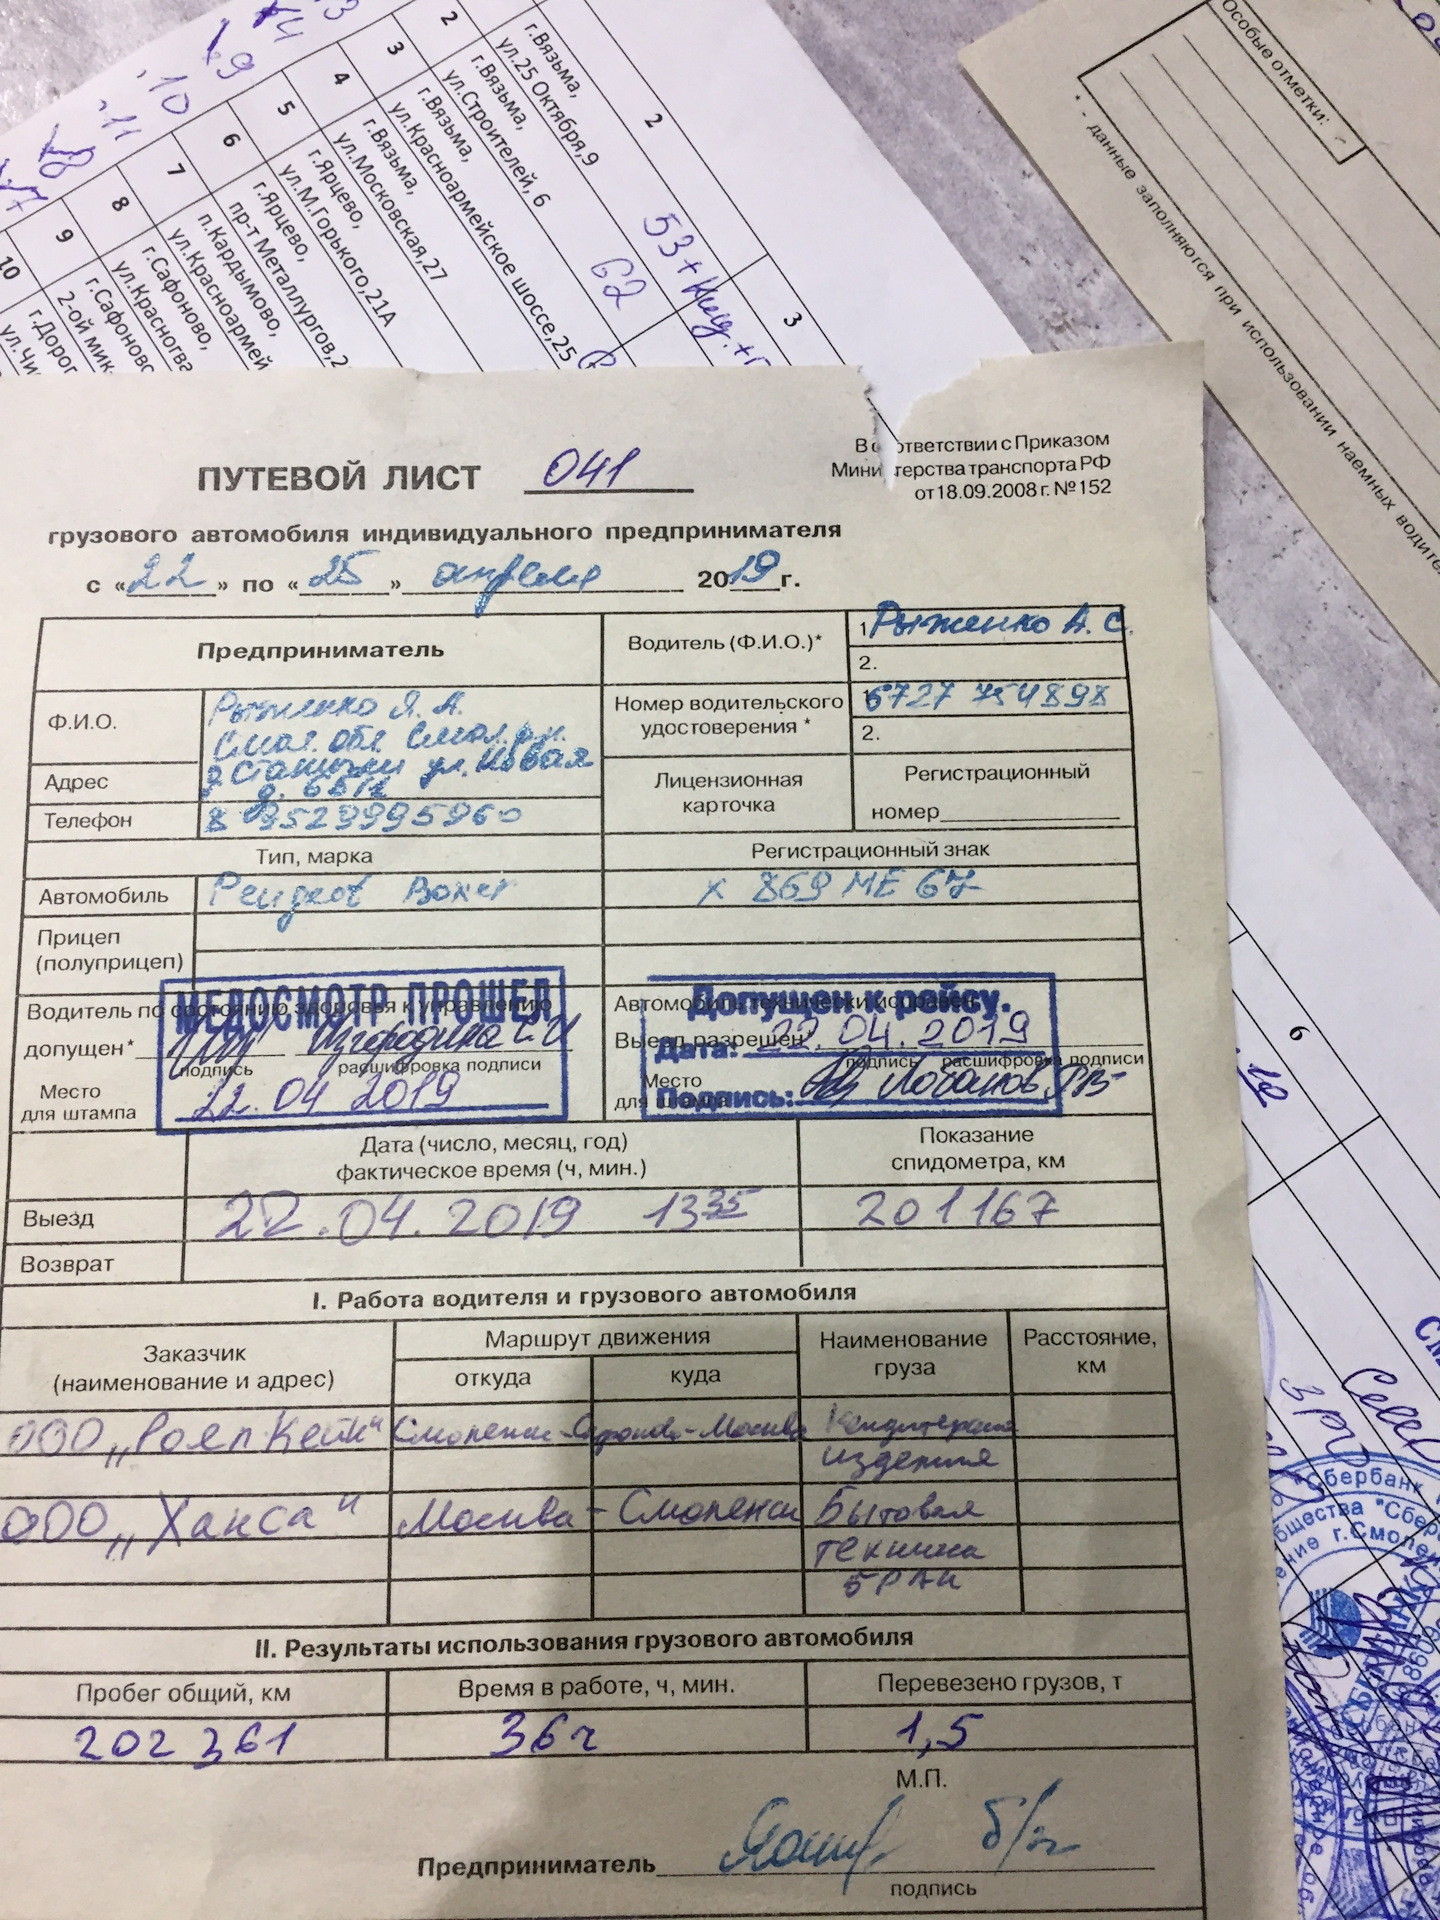 2
3
2
г.Вязьма,
ул.25 Октября,9
53+
3
г.Вязьма,
ул.Строителей, 6
62
4
г.Вязьма,
ул.Красноармейское шоссе,25
5
г.Вязьма,
ул.Московская,27
6
г.Ярцево,
ул.М.Горького,21А
7
г.Ярцево,
пр-т Металлургов,2
8
п.Кардымово,
ул.Красноармей
9
г.Сафоново,
ул.Красногва
10
г.Сафоново
2-ой мик
г.Дорог
ул.Чи
Особые отметки:
* - данные заполняются при использовании наемных водител
ПУТЕВОЙ ЛИСТ 041
В соответствии с Приказом
Министерства транспорта РФ
от 18.09.2008 г. № 152
грузового автомобиля индивидуального предпринимателя
с «22» по «25» апреля 2019 г.
Предприниматель
Водитель (Ф.И.О.)*
1. Рыженко А. С.
2.
Ф.И.О.
Рыженко Я. А.
Номер водительского удостоверения *
1. 6727 754898
2.
Адрес
Смол. обл. Смол. р-н.
ул. Новая
Телефон
8 9529995960
Лицензионная карточка
Регистрационный
номер
Тип, марка
Регистрационный знак
Автомобиль
Peugeot Boxer
х 869 МЕ 67
Прицеп
(полуприцеп)
Водитель по состоянию здоровья к управлению
допущен*
подпись расшифровка подписи
Место
для штампа
МЕДОСМОТР ПРОШЕЛ
22.04 2019
Автомобиль технически исправен
Выезд разрешен
подпись расшифровка подписи
Место
для штампа
Допущен к рейсу.
Дата: 22.04.2019
Подпись: Лобанов
Дата (число, месяц, год)
фактическое время (ч, мин.)
Показание
спидометра, км
Выезд
22.04.2019 13 35
201167
Возврат
I. Работа водителя и грузового автомобиля
Заказчик
(наименование и адрес)
Маршрут движения
откуда
куда
Наименование
груза
Расстояние,
км
ООО „Роял Кейк" Смоленск-Сафоново-Москва Кондитерские
изделия
ООО „Ханса" Москва - Смоленск Бытовая
техника
II. Результаты использования грузового автомобиля
Пробег общий, км
Время в работе, ч, мин.
Перевезено грузов, т
202 361
36ч
1,5
М.П.
Предприниматель б/п
подпись
6
"Сбербанк
бщества "Сбер
ение г.Смолен